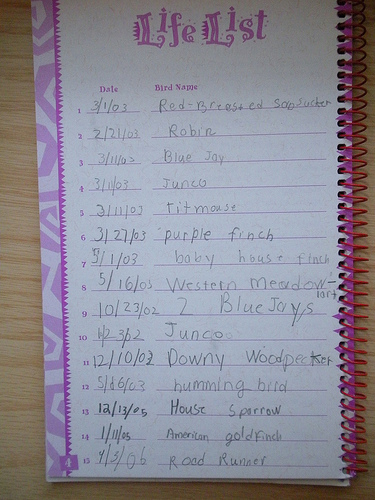 Life List
Date Bird Name
1 3/1/03 Red-Breasted Sapsucker
2 2/21/03 Robin
3 3/11/03 Blue Jay
4 3/11/03 Junco
5 3/11/03 titmouse
6 3/27/03 purple finch
7 5/1/03 baby house finch
8 5/16/03 Western Meadow-
lark
9 10/23/02 2 Blue Jays
10 Junco
11 12/10/02 Downy Woodpecker
12 5/16/03 humming bird
13 12/13/05 House Sparrow
14 1/11/05 American goldfinch
15 9/3/06 Road Runner
4